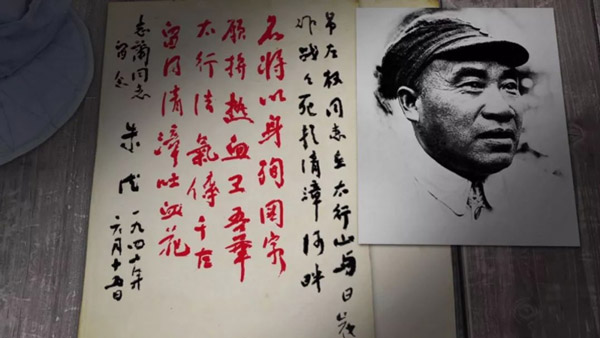 吊左权同志在太行山与日寇
作战々死於清漳河畔
名将以身殉国家
愿拚热血卫吾华
太行浩气传千古
留得清漳吐血花
志蘭同志
留念
朱德
一九四二年
六月十五日